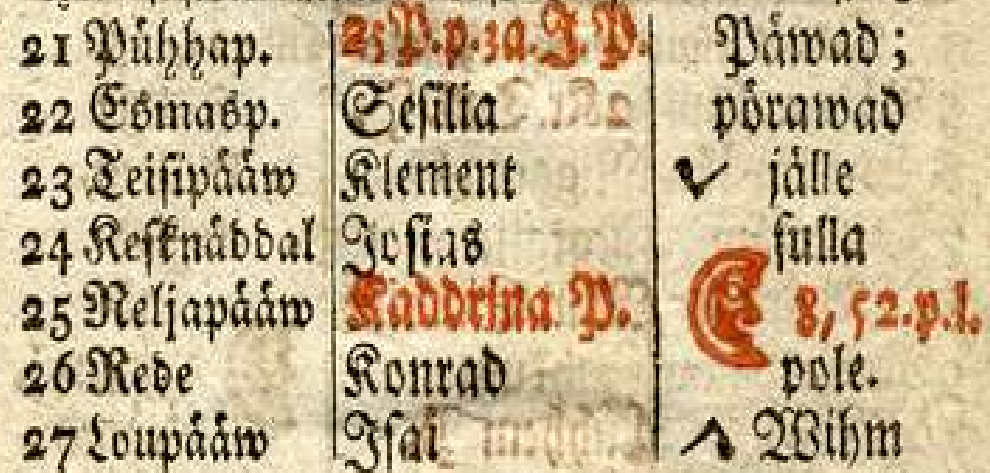 21 Pühhap. 25 P. p. 3a. J. P. Päwad;
22 Esmasp. Sesilia pörawad
23 Teisipääw Klement jälle
24 Kesknäddal Josias sulla
25 Neljapääw Kaddrina P. 8, 52. p. l.
26 Rede Konrad pole.
27 Loupääw Jsai Wihm